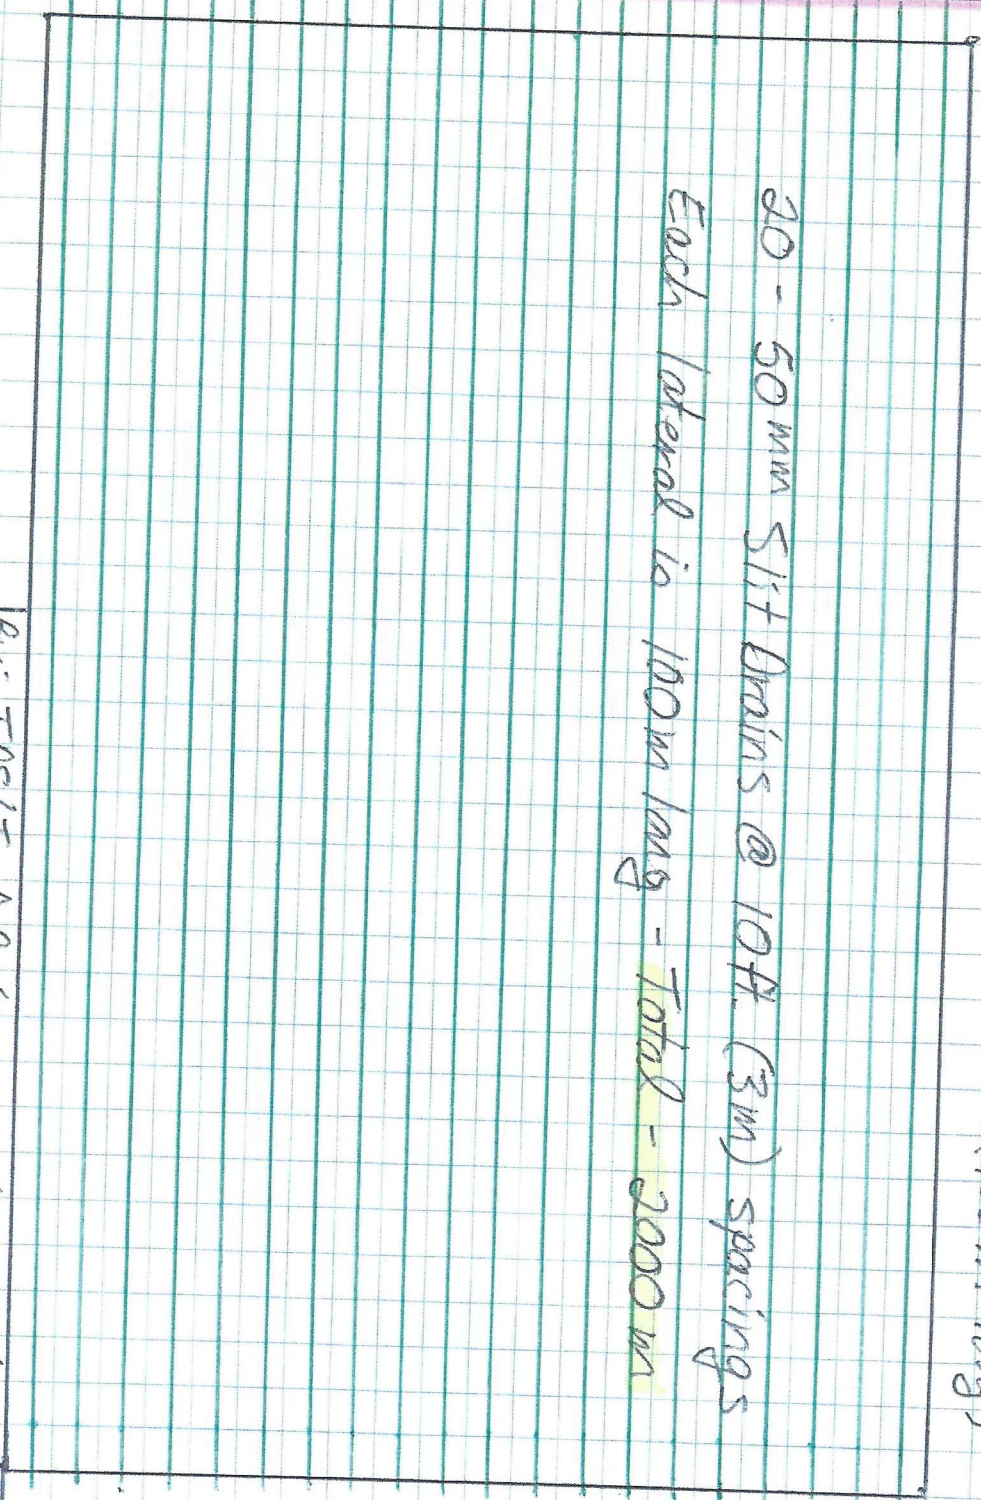 20 - 50mm Slit Drains @ 10ft. (3m) spacings
Each lateral is 100m long - Total - 2000m